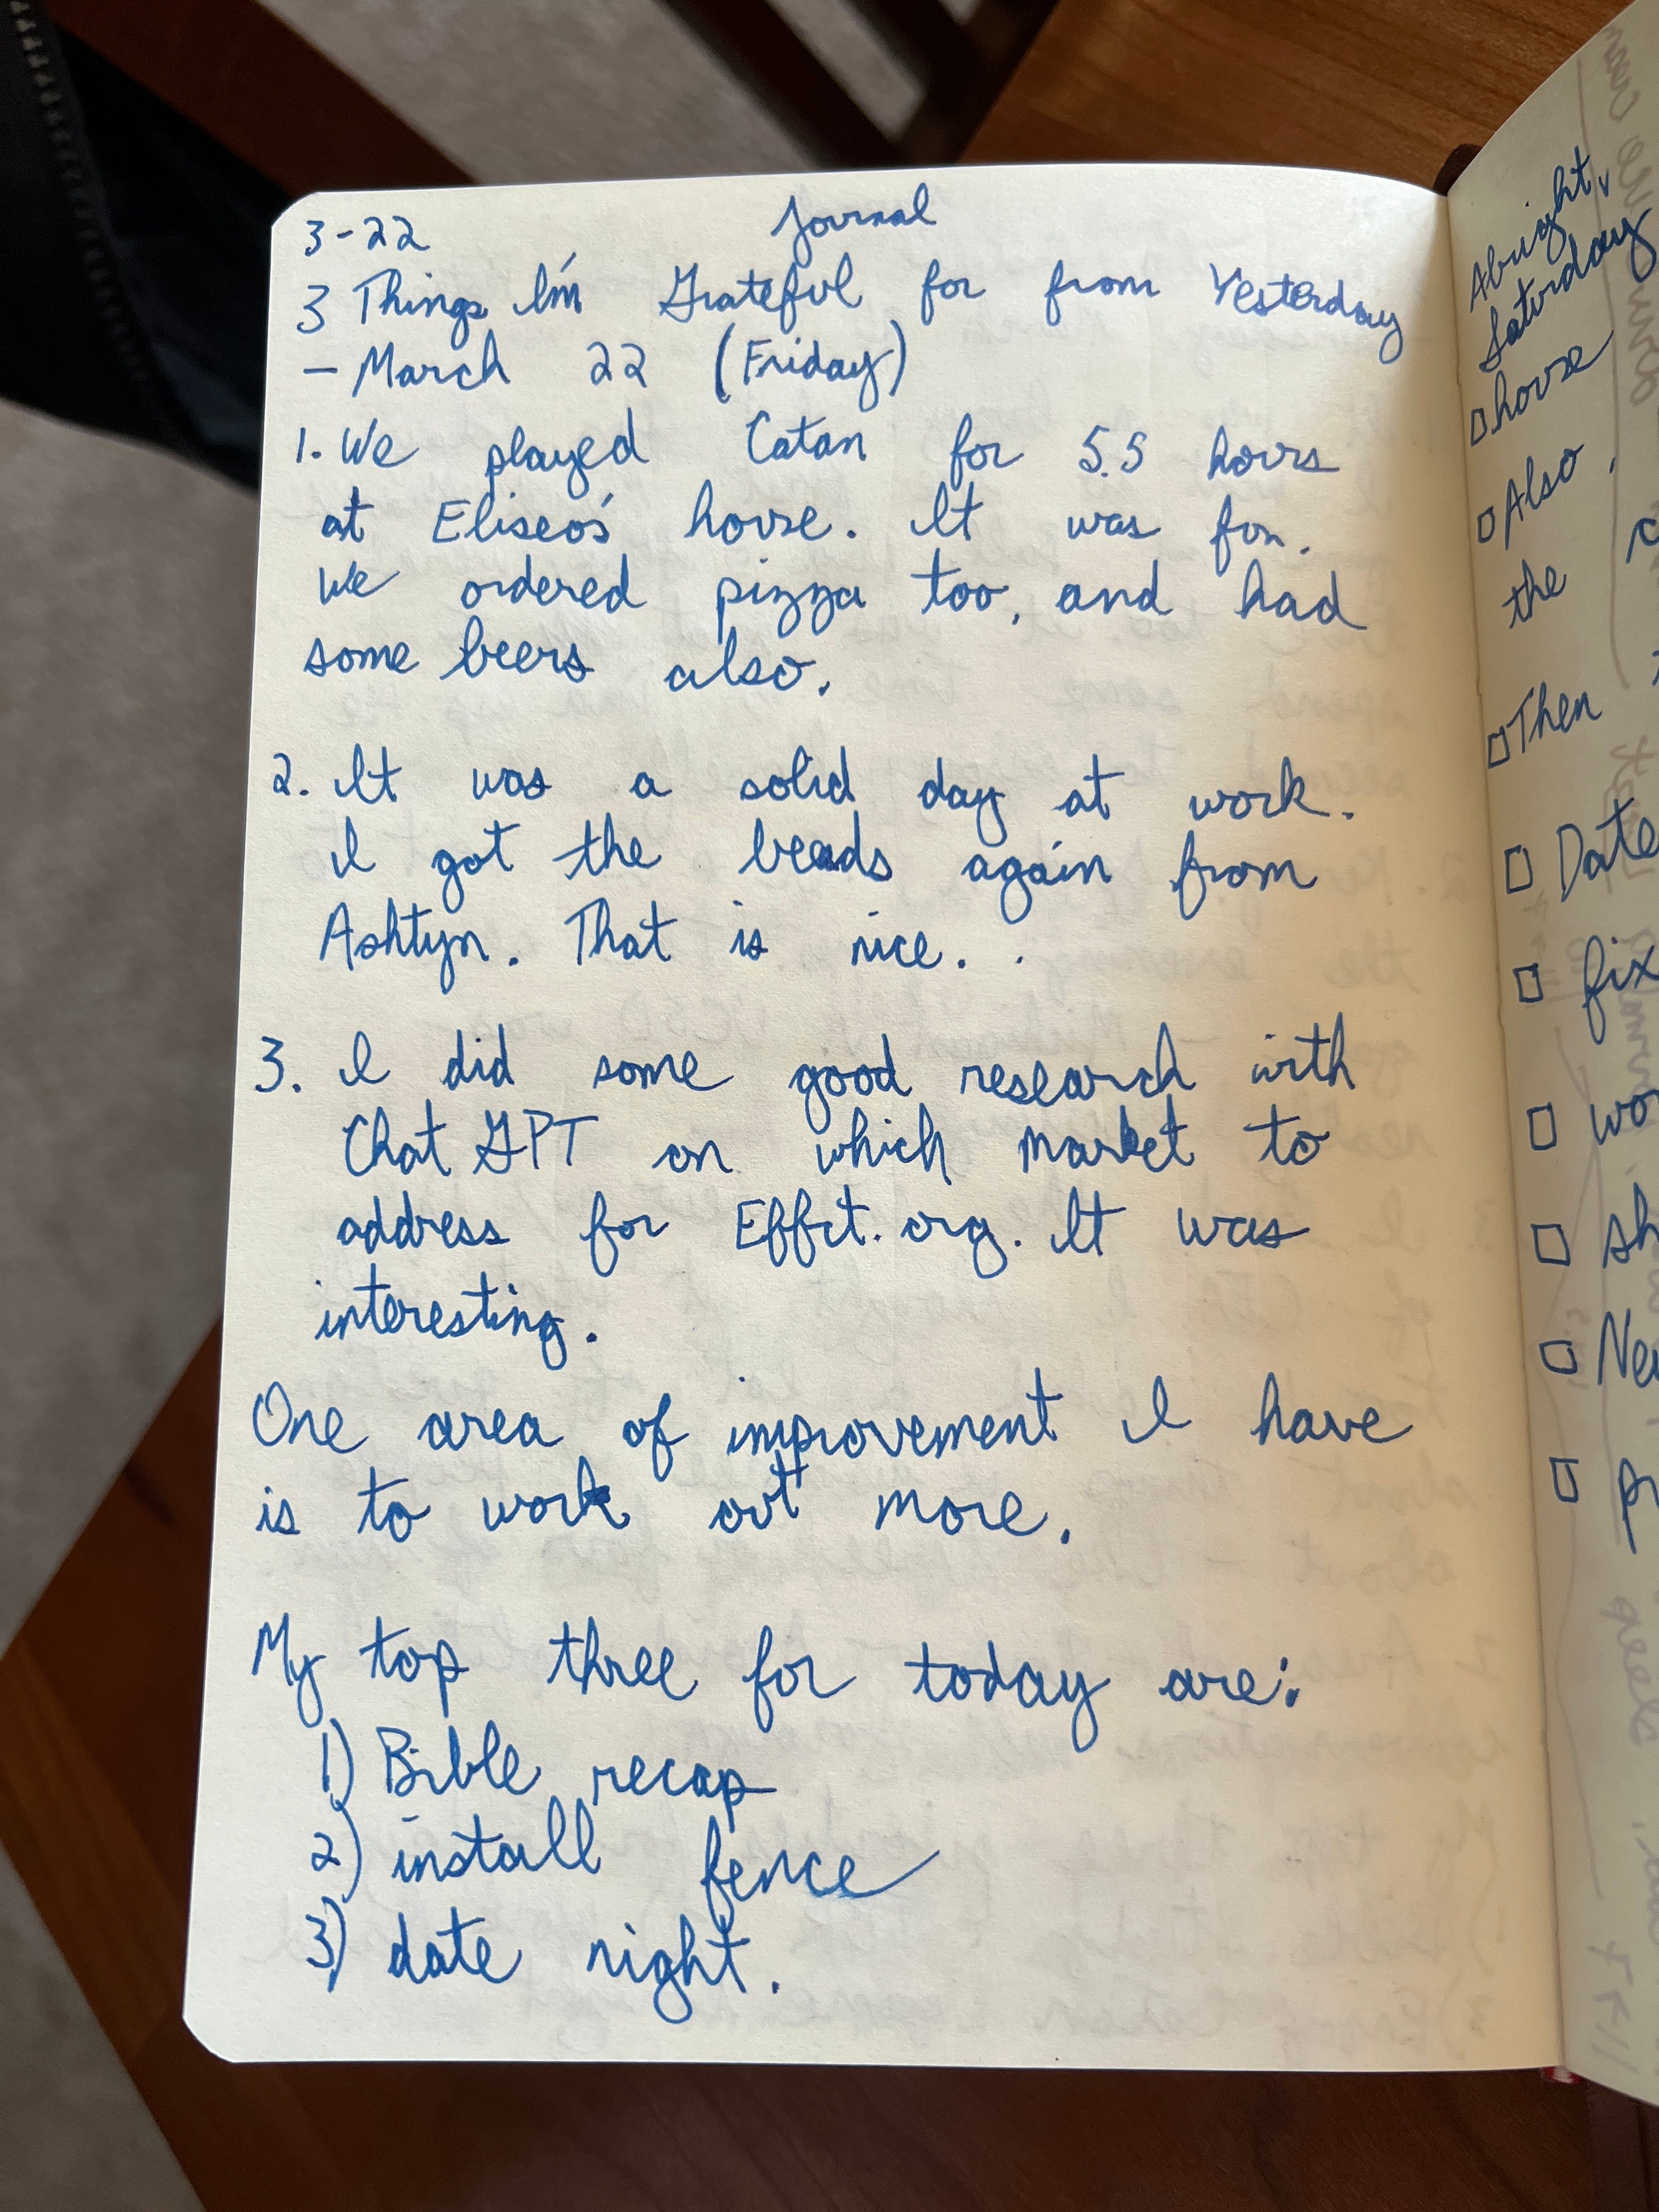 3-22
Journal
3 Things I'm Grateful for from Yesterday
- March 22 (Friday)
1. We played Catan for 5.5 hours
at Eliseo's house. It was fun.
We ordered pizza too, and had
some beers also.
2. It was a solid day at work.
I got the beads again from
Ashtyn. That is nice.
3. I did some good research with
Chat GPT on which market to
address for Effct.org. It was
interesting.
One area of improvement I have
is to work out more.
My top three for today are:
1) Bible recap
2) install fence
3) date night.
Alright,
Saturday
□ house
□ Also
the
□ Then
□ Date
□ fix
□ wor
□ sh
□ Ne
□ pr